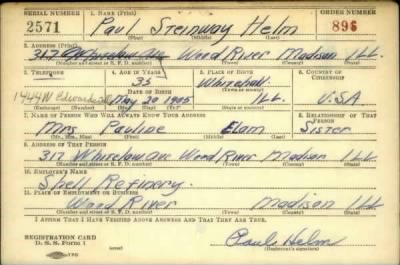 SERIAL NUMBER 1. NAME (Print) ORDER NUMBER
2571 Paul Steinway Helm 895
(First) (Middle) (Last)
2. ADDRESS (Print)
317 Whitelaw Ave Wood River Madison Ill.
(Number and street or R. F. D. number) (Town) (County) (State)
3. TELEPHONE 4. AGE IN YEARS 5. PLACE OF BIRTH 6. COUNTRY OF CITIZENSHIP
35 Whitehall
1444 W Edwardsville DATE OF BIRTH (Town or county)
May 20 1905 Ill. U.S.A
(Exchange) (Number) (Mo.) (Day) (Yr.) (State or country)
7. NAME OF PERSON WHO WILL ALWAYS KNOW YOUR ADDRESS 8. RELATIONSHIP OF THAT PERSON
Mrs Pauline Elam Sister
(Mr., Mrs., Miss) (First) (Middle) (Last)
9. ADDRESS OF THAT PERSON
317 Whitelaw Ave Wood River Madison Ill
(Number and street or R. F. D. number) (Town) (County) (State)
10. EMPLOYER'S NAME
Shell Refinery.
11. PLACE OF EMPLOYMENT OR BUSINESS
Wood River Madison Ill
(Number and street or R. F. D. number) (Town) (County) (State)
I AFFIRM THAT I HAVE VERIFIED ABOVE ANSWERS AND THAT THEY ARE TRUE.
REGISTRATION CARD
D. S. S. Form 1 Paul Helm
(Registrant's signature)